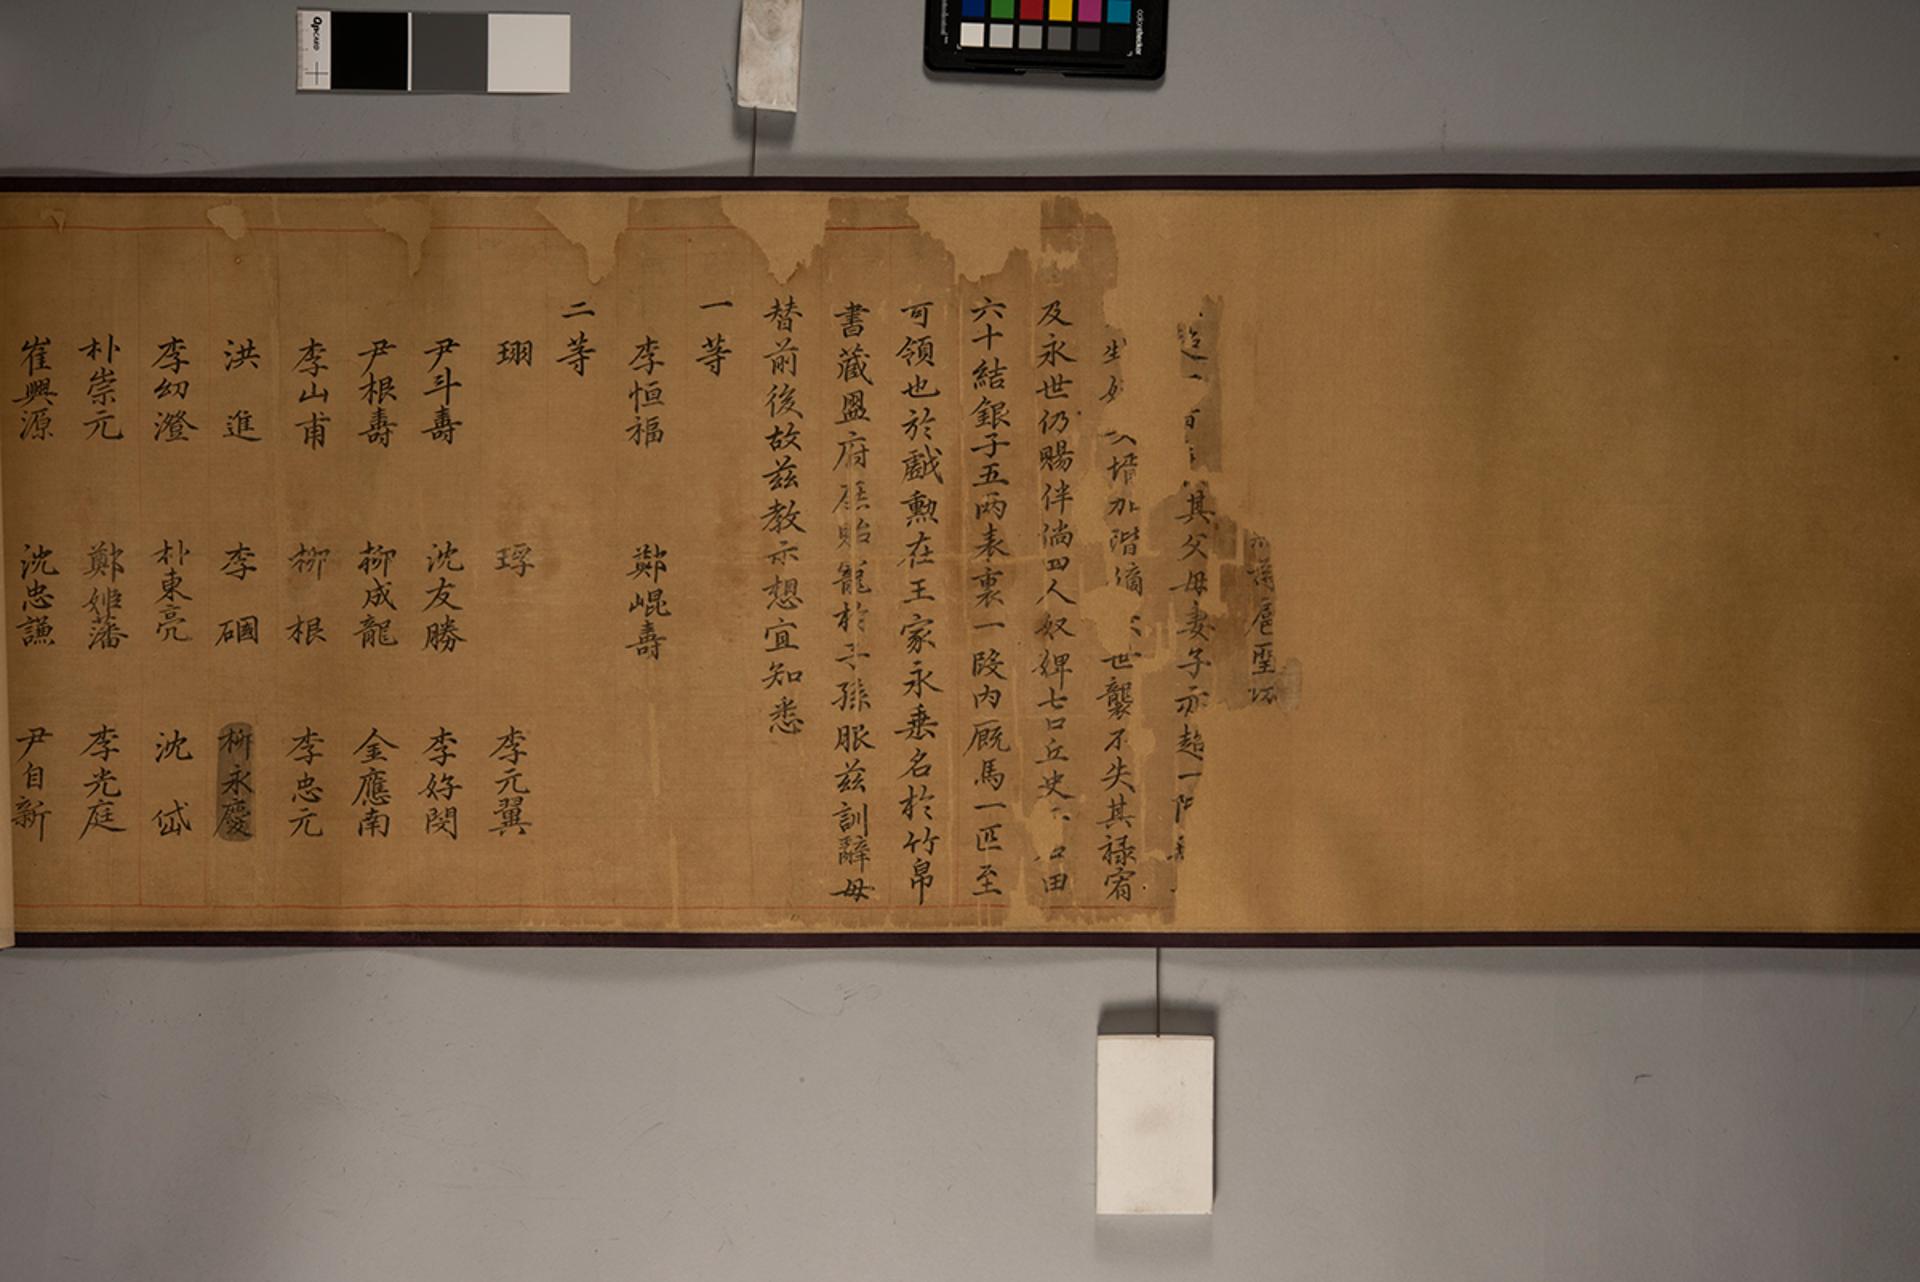 扈聖
一 其父母妻子亦超一階
壻加階 世襲不失其祿宥
及永世仍賜伴倘四人奴婢七口丘史 田
六十結銀子五兩表裏一段內廐馬一匹至
可領也於戲勳在王家永垂名於竹帛
書藏盟府 貽寵於子孫服茲訓辭毋
替前後故茲教示想宜知悉
一等
李恒福 鄭崐壽
二等
珝 琈 李元翼
尹斗壽 沈友勝 李好閔
尹根壽 柳成龍 金應南
李山甫 柳根 李忠元
洪進 李碅 柳永慶
李幼澄 朴東亮 沈岱
朴崇元 鄭姬藩 李光庭
崔興源 沈忠謙 尹自新
colorchecker